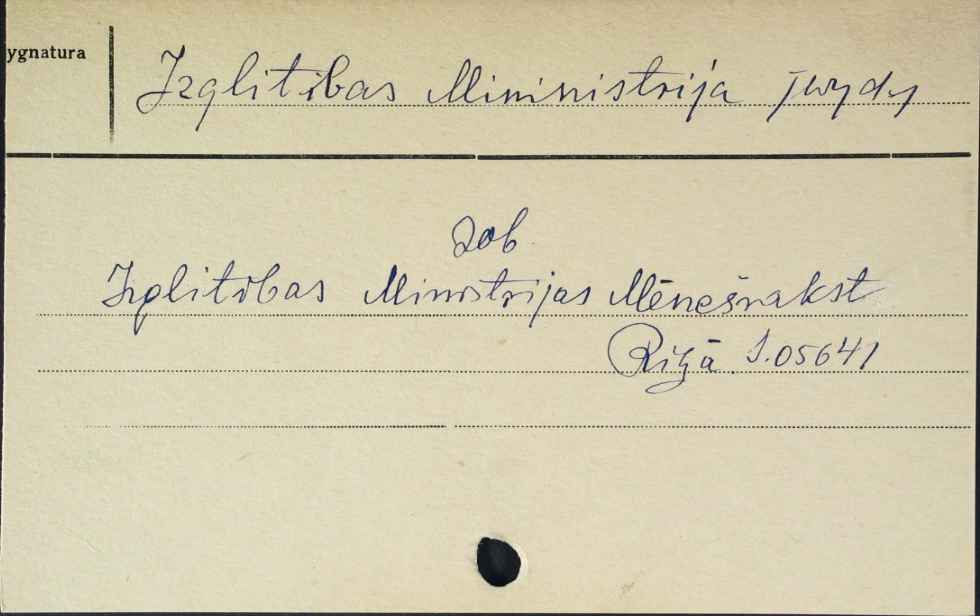 ygnatura
Izglitibas Ministrija
zob
Izglitibas Ministrijas Mēnešrakst
Rīgā S.05641